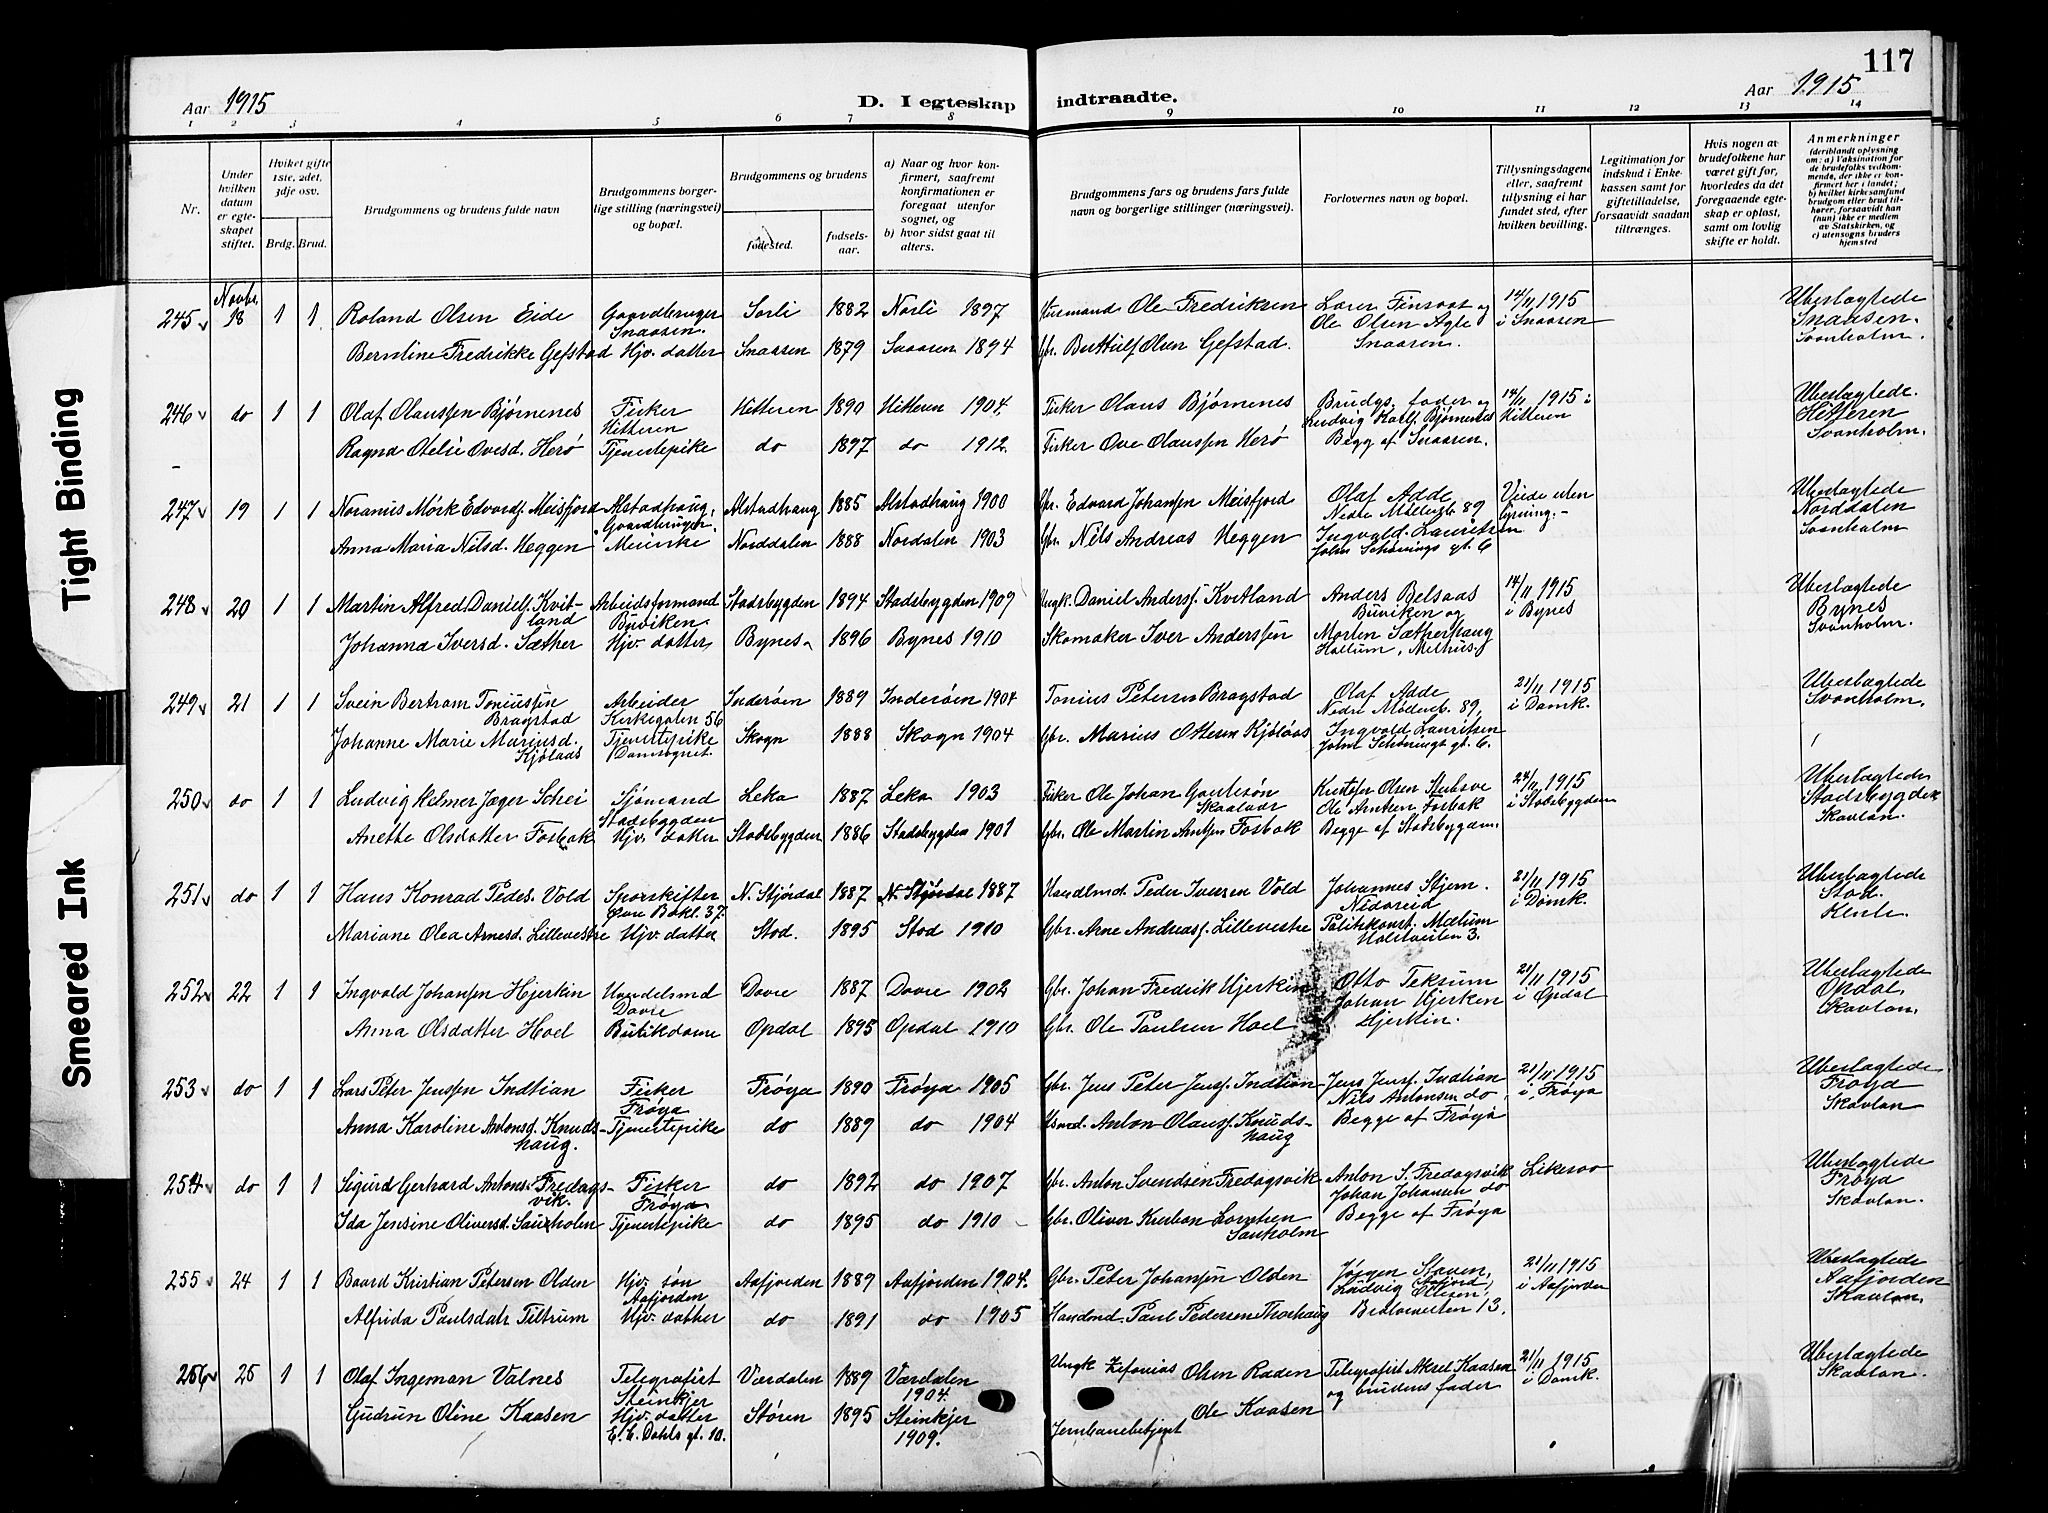 117
Aar 1915
D. I egteskap indtraadte.
Aar 1915
1 2 3 4 5 6 7 8 9 10 11 12 13 14
Tight Binding
Smeared Ink
Nr.
Under hvilken datum er egteskapet stiftet.
Hvilket gifte 1ste, 2det, 3dje osv.
Brdg. Brud.
Brudgommens og brudens fulde navn
Brudgommens borgerlige stilling (næringsvei) og bopæl.
Brudgommens og brudens
fødested.
fødselsaar.
a) Naar og hvor konfirmert, saafremt konfirmationen er foregaat utenfor sognet, og
b) hvor sidst gaat til alters.
Brudgommens fars og brudens fars fulde navn og borgerlige stillinger (næringsvei).
Forlovernes navn og bopæl.
Tillysningsdagene eller, saafremt tillysning ei har fundet sted, efter hvilken bevilling.
Legitimation for indskud i Enkekassen samt for giftetilladelse, forsaavidt saadan tiltrænges.
Hvis nogen av brudefolkene har været gift før, hvorledes da det foregaaende egteskap er opløst, samt om lovlig skifte er holdt.
Anmerkninger (deriblandt oplysning om: a) Vaksination for de brudefolks vedkommende, der ikke er konfirmert her i landet; b) hvilket kirkesamfund brudgom eller brud tilhører, forsaavidt han (hun) ikke er medlem av Statskirken, og c) utensogns bruders hjemsted
245 Novbr. 18 1 1 Roland Olsen Eide Gaardbruger Snaasen. Sørli 1882 Nørli 1897 Husmand Ole Fredriksen Lærer Finsaas og Ole Olsen Agle Snaasen. 14/11 1915 i Snaasen Ubeslægtede Snaasen. Svanholm.
Berntine Fredrikke Gefstad Hjv. datter Snaasen 1879 Snaasen 1894 Gbr. Bertulf Olsen Gefstad.
246 do 1 1 Olaf Olaussen Bjørnenes Fisker Hitteren Hitteren 1890 Hitteren 1904. Fisker Olaus Bjørnenes Brudg. fader og Ludvig Karlf. Bjørnenes Begg af Snaasen. 14/11 1915 i Hitteren Ubeslægtede. Hitteren Svanholm.
Ragna Otelie Ovesd. Herø Tjenestepike do 1897 do 1912. Fisker Ove Olaussen Herø
247 19 1 1 Noranus Mørk Edvardj. Meisfjord Alstadhaug, Gaardbruger. Alstadhaug 1885 Alstadhaug 1900 Gbr. Edvard Johansen Meisfjord Olaf Adde Nedre Møllenb. 89 Ingvald Lauritsen John Schønings gt. 6 Viede uten lysning. - Ubeslægtede Norddalen Svanholm
Anna Maria Nilsd. Heggen Meierske Norddalen 1888 Nordalen 1903 Gbr. Nils Andreas Heggen
248 20 1 1 Martin Alfred Danielj. Kvitland Arbeidsformand Buviken. Stadsbygden 1894 Stadsbygden 1909 Ungk. Daniel Andersj. Kvitland Anders Belsaas Buviken og Morten Sætherhaug Hollum, Melhus. 14/11 1915 i Bynes Ubeslægtede Bynes Svanholm.
Johanna Iversd. Sæther Hjv. datter Bynes 1896 Bynes 1910 Skomaker Iver Anderssen
249 21 1 1 Svein Bertram Toniussen Bragstad Arbeider Kirkegaten 56 Inderøen 1889 Inderøen 1904 Tonius Petersen Bragstad Olaf Adde Nedre Møllenb. 89, Ingvald Lauritsen John Schønings gt. 6. 21/11 1915 i Domk. Ubeslægtede Svanholm.
Johanne Marie Mariusd. Kjølaas Tjenestepike Domsognet. Skogn 1888 Skogn 1904 Gbr. Marius Ottersen Kjølaas
250 do 1 1 Ludvig Helmer Jæger Schei Sjømand Stadsbygden Leka 1887 Leka 1903 Fisker Ole Johan Gautesøn Skaalvær Kristofer Olsen Stubsve Ole Arntsen Fosbak Begge af Stadsbygden. 24/11 1915 i Stadsbygden Ubeslægtede Stadsbygden Skavlan.
Anette Olsdatter Fosbak Hjv. datter Stadsbygden 1886 Stadsbygden 1901 Gbr. Ole Martin Arntsen Fosbak
251 do 1 1 Hans Konrad Peders. Vold Sporskifter Øvre Bakl. 37. N. Stjørdal 1887 N. Stjørdal 1887 Handlmd. Peder Iversen Vold Johannes Stjern. Nidareid Politikonst. Mælum Hotelveiten 3. 21/11 1915 i Domk. Ubeslægtede Stod. Klente.
Mariane Olea Arnesd. Lillevestre Hjv. datter Stod. 1895 Stod 1910 Gbr. Arne Andreasj. Lillevestre
252 22 1 1 Ingvald Johansen Hjerkin Handelsmd Dovre Dovre 1887 Dovre 1902 Gbr. Johan Fredrik Hjerkin Otto Teksum Johan Hjerken Hjerkin. 21/11 1915 i Opdal Ubeslægtede Opdal, Skavlan.
Anna Olsdatter Hoel Butikdame Opdal 1895 Opdal 1910 Gbr. Ole Paulsen Hoel
253 do 1 1 Lars Peter Jenssen Indtian Fisker Frøya Frøya 1890 Frøya 1905 Gbr. Jens Peter Jensj. Indtian Jens Jensj. Indtian Nils Antonsen do Begge af Frøya 21/11 1915 i Frøya Ubeslægtede Frøya Skavlan
Anna Karoline Antonsd. Knudshaug. Tjenestepike do 1889 do 1904 Husmd. Anton Olausj. Knudshaug
254 do 1 1 Sigurd Gerhard Antons. Fredagsvik. Fisker Frøya do 1892 do 1907 Gbr. Anton Svendsen Fredagsvik Anton S. Fredagsvik Johan Johansen do Begge af Frøya Likesaa Ubeslægtede Frøya Skavlan.
Ida Jensine Oliversd. Sauholm Tjenestepike do 1895 do 1910 Gbr. Oliver Lorntsen Sauholm
255 24 1 1 Baard Kristian Petersen Olden Hjv. søn Aafjorden Aafjorden 1889 Aafjorden 1904. Gbr. Peter Johansen Olden Jørgen Staven, Aafjord, Ludvig Ottesen, Bratveiten 13. 21/11 1915 i Aafjorden Ubeslægtede Aafjorden Skavlan.
Alfrida Paulsdatr Tiltrum Hjv. datter do 1891 do 1905 Handlmd. Paul Pedersen Thorhaug
256 25 1 1 Olaf Ingeman Valnes Telegrafist Steinkjer Værdalen 1889 Værdalen 1904. Ungk Zefanias Olsen Raden Telegrafist Aksel Kaasen og brudens fader 21/11 1915 i Domk. Ubeslægtede Skavlan.
Gudrun Oline Kaasen Hjv. datter E. C. Dahls gt. 10. Støren 1895 Steinkjer 1909. Jernbanebetjent Ole Kaasen